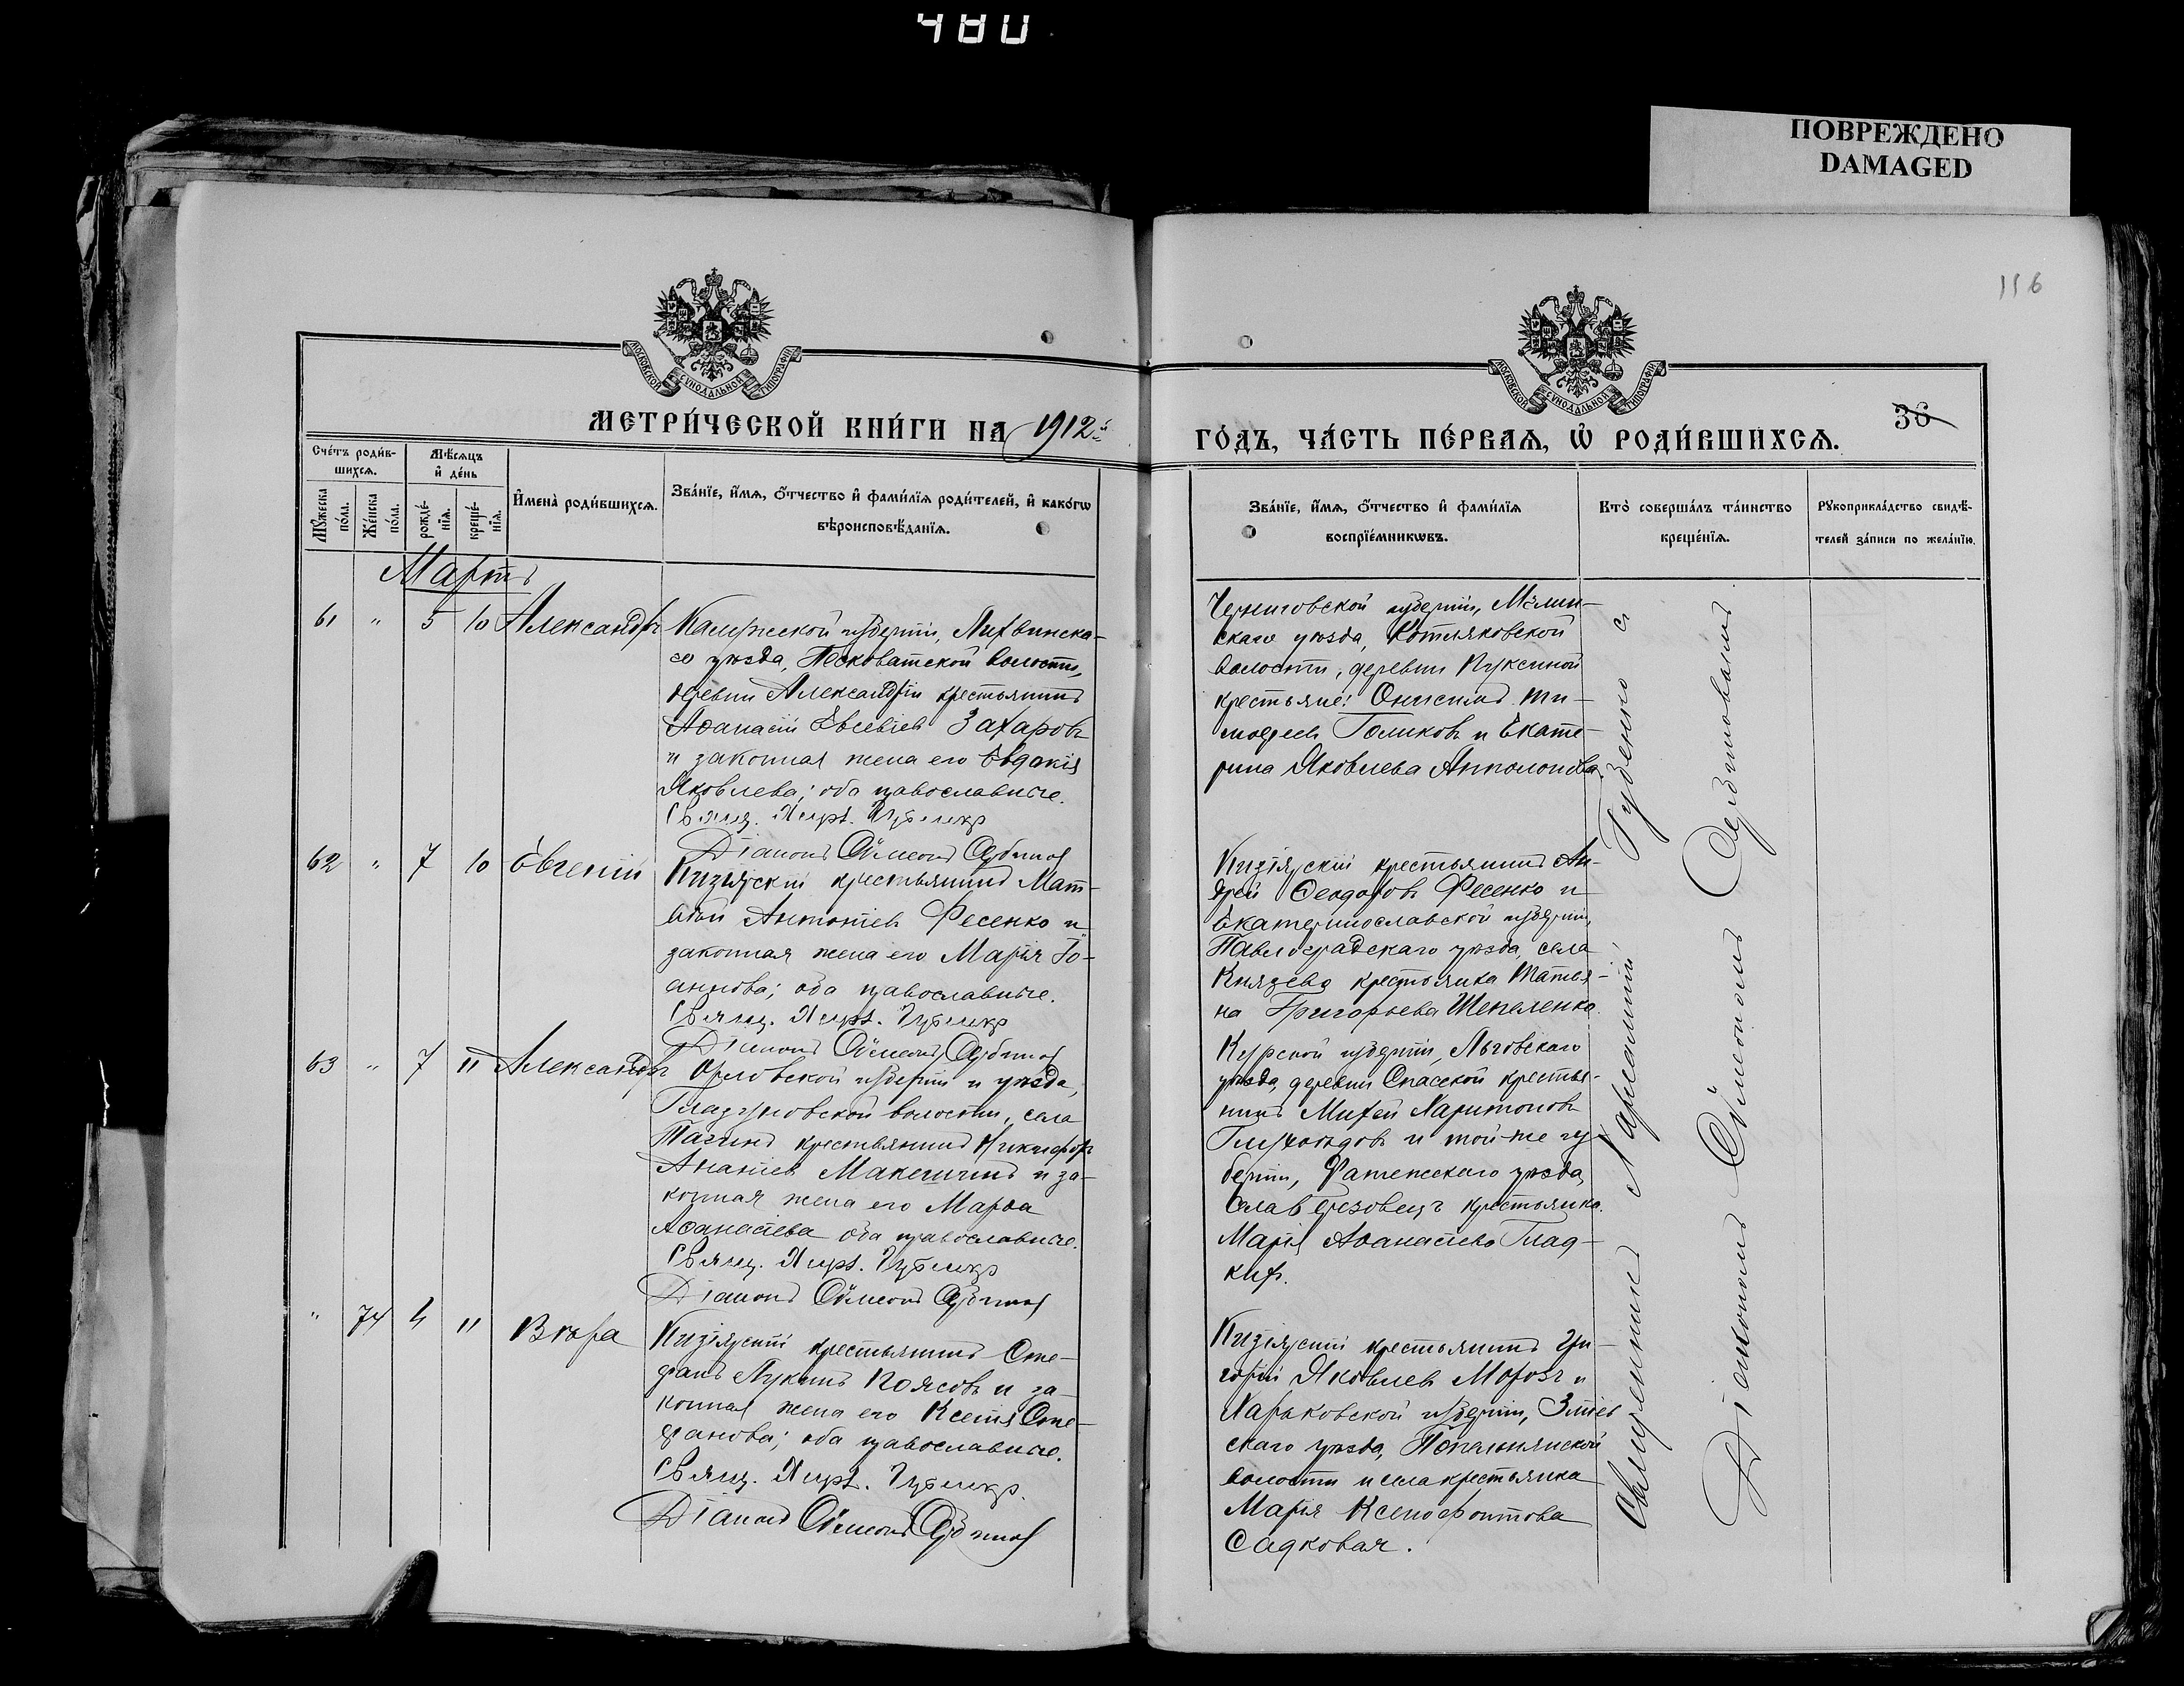 480
ПОВРЕЖДЕНО
DAMAGED
116
МОСКОВСКОЙ СѴНОДАЛЬНОЙ ТИПОГРАФІИ
МОСКОВСКОЙ СѴНОДАЛЬНОЙ ТИПОГРАФІИ
36
МЕТРИ́ЧЕСКОЙ КНИ́ГИ НА 1912й
ГО́ДЪ, ЧА́СТЬ ПЕ́РВАѦ, Ѡ҆ РОДИ́ВШИХСѦ.
Сче́тъ роди́в-
шихсѧ.
Мѣ́сѧцъ
и҆ де́нь
Мꙋ́жеска по́ла.
Же́нска по́ла.
рожде́-нїѧ.
креще́-нїѧ.
И҆мена̀ роди́вшихсѧ.
Зва́нїе, и҆́мѧ, ѻ҆́тчество и҆ фами́лїѧ роди́телей, и҆ како́гѡ
вѣроисповѣ́данїѧ.
Зва́нїе, и҆́мѧ, ѻ҆́тчество и҆ фами́лїѧ
воспрїе́мникѡвъ.
Кто̀ соверша́лъ та́инство
креще́нїѧ.
Рꙋкоприкла́дство свидѣ́-
телей за́писи по жела́нїю.
Мартъ
61 " 5 10 Александръ
Калужской губерніи, Лихвинска-
го уѣзда, Песковатской волости,
деревни Александріи крестьянинъ
Аѳанасій Евсевіевъ Захаровъ
и законная жена его Евдокія
Яковлева; оба православные.
Свящ. Харл. Губенко
Діаконъ Сѵмеонъ
Черниговской губерніи, Мглин-
скаго уѣзда, Котляковской
волости, деревни Пуксиной
крестьяне: Онисимъ Ти-
моѳеевъ Голиковъ и Екате-
рина Яковлева Антонова.
62 " 7 10 Евгеній
Кизіярскій крестьянинъ Мат-
ѳей Антоніевъ Фесенко и
законная жена его Марія Іо-
аннова; оба православные.
Свящ. Харл. Губенко
Діаконъ Сѵмеонъ
Кизіярскій крестьянинъ Ан-
дрей Ѳеодоровъ Фесенко и
Екатеринославской губерніи,
Павлоградскаго уѣзда, села
Князево крестьянка Татья-
на Григорьева Шепеленко.
63 " 7 11 Александръ
Орловской губерніи и уѣзда,
волости, села
крестьянинъ Никифоръ
Ананіевъ и за-
конная жена его Марѳа
Аѳанасіева оба православные.
Свящ. Харл. Губенко
Діаконъ Сѵмеонъ
Курской губерніи, Льговскаго
уѣзда, деревни Спасской крестья-
нинъ Михей Харитоновъ
и той-же гу-
берніи, Фатежскаго уѣзда,
села Березовецъ крестьянка
Марія Аѳанасіева Глад-
кихъ.
" 74 4 11 Вѣра
Кизіярскій крестьянинъ Сте-
фанъ Лукинъ Поясовъ и за-
конная жена его Ксенія Сте-
фанова; оба православные.
Свящ. Харл. Губенко.
Діаконъ Сѵмеонъ
Кизіярскій крестьянинъ Гри-
горій Яковлевъ Морозъ и
Харьковской губерніи, Зміев-
скаго уѣзда,
волости и села крестьянка
Марія Ксенофонтова
Садковая.
Священникъ Харлампій Губенко съ
Діакономъ Сѵмеономъ